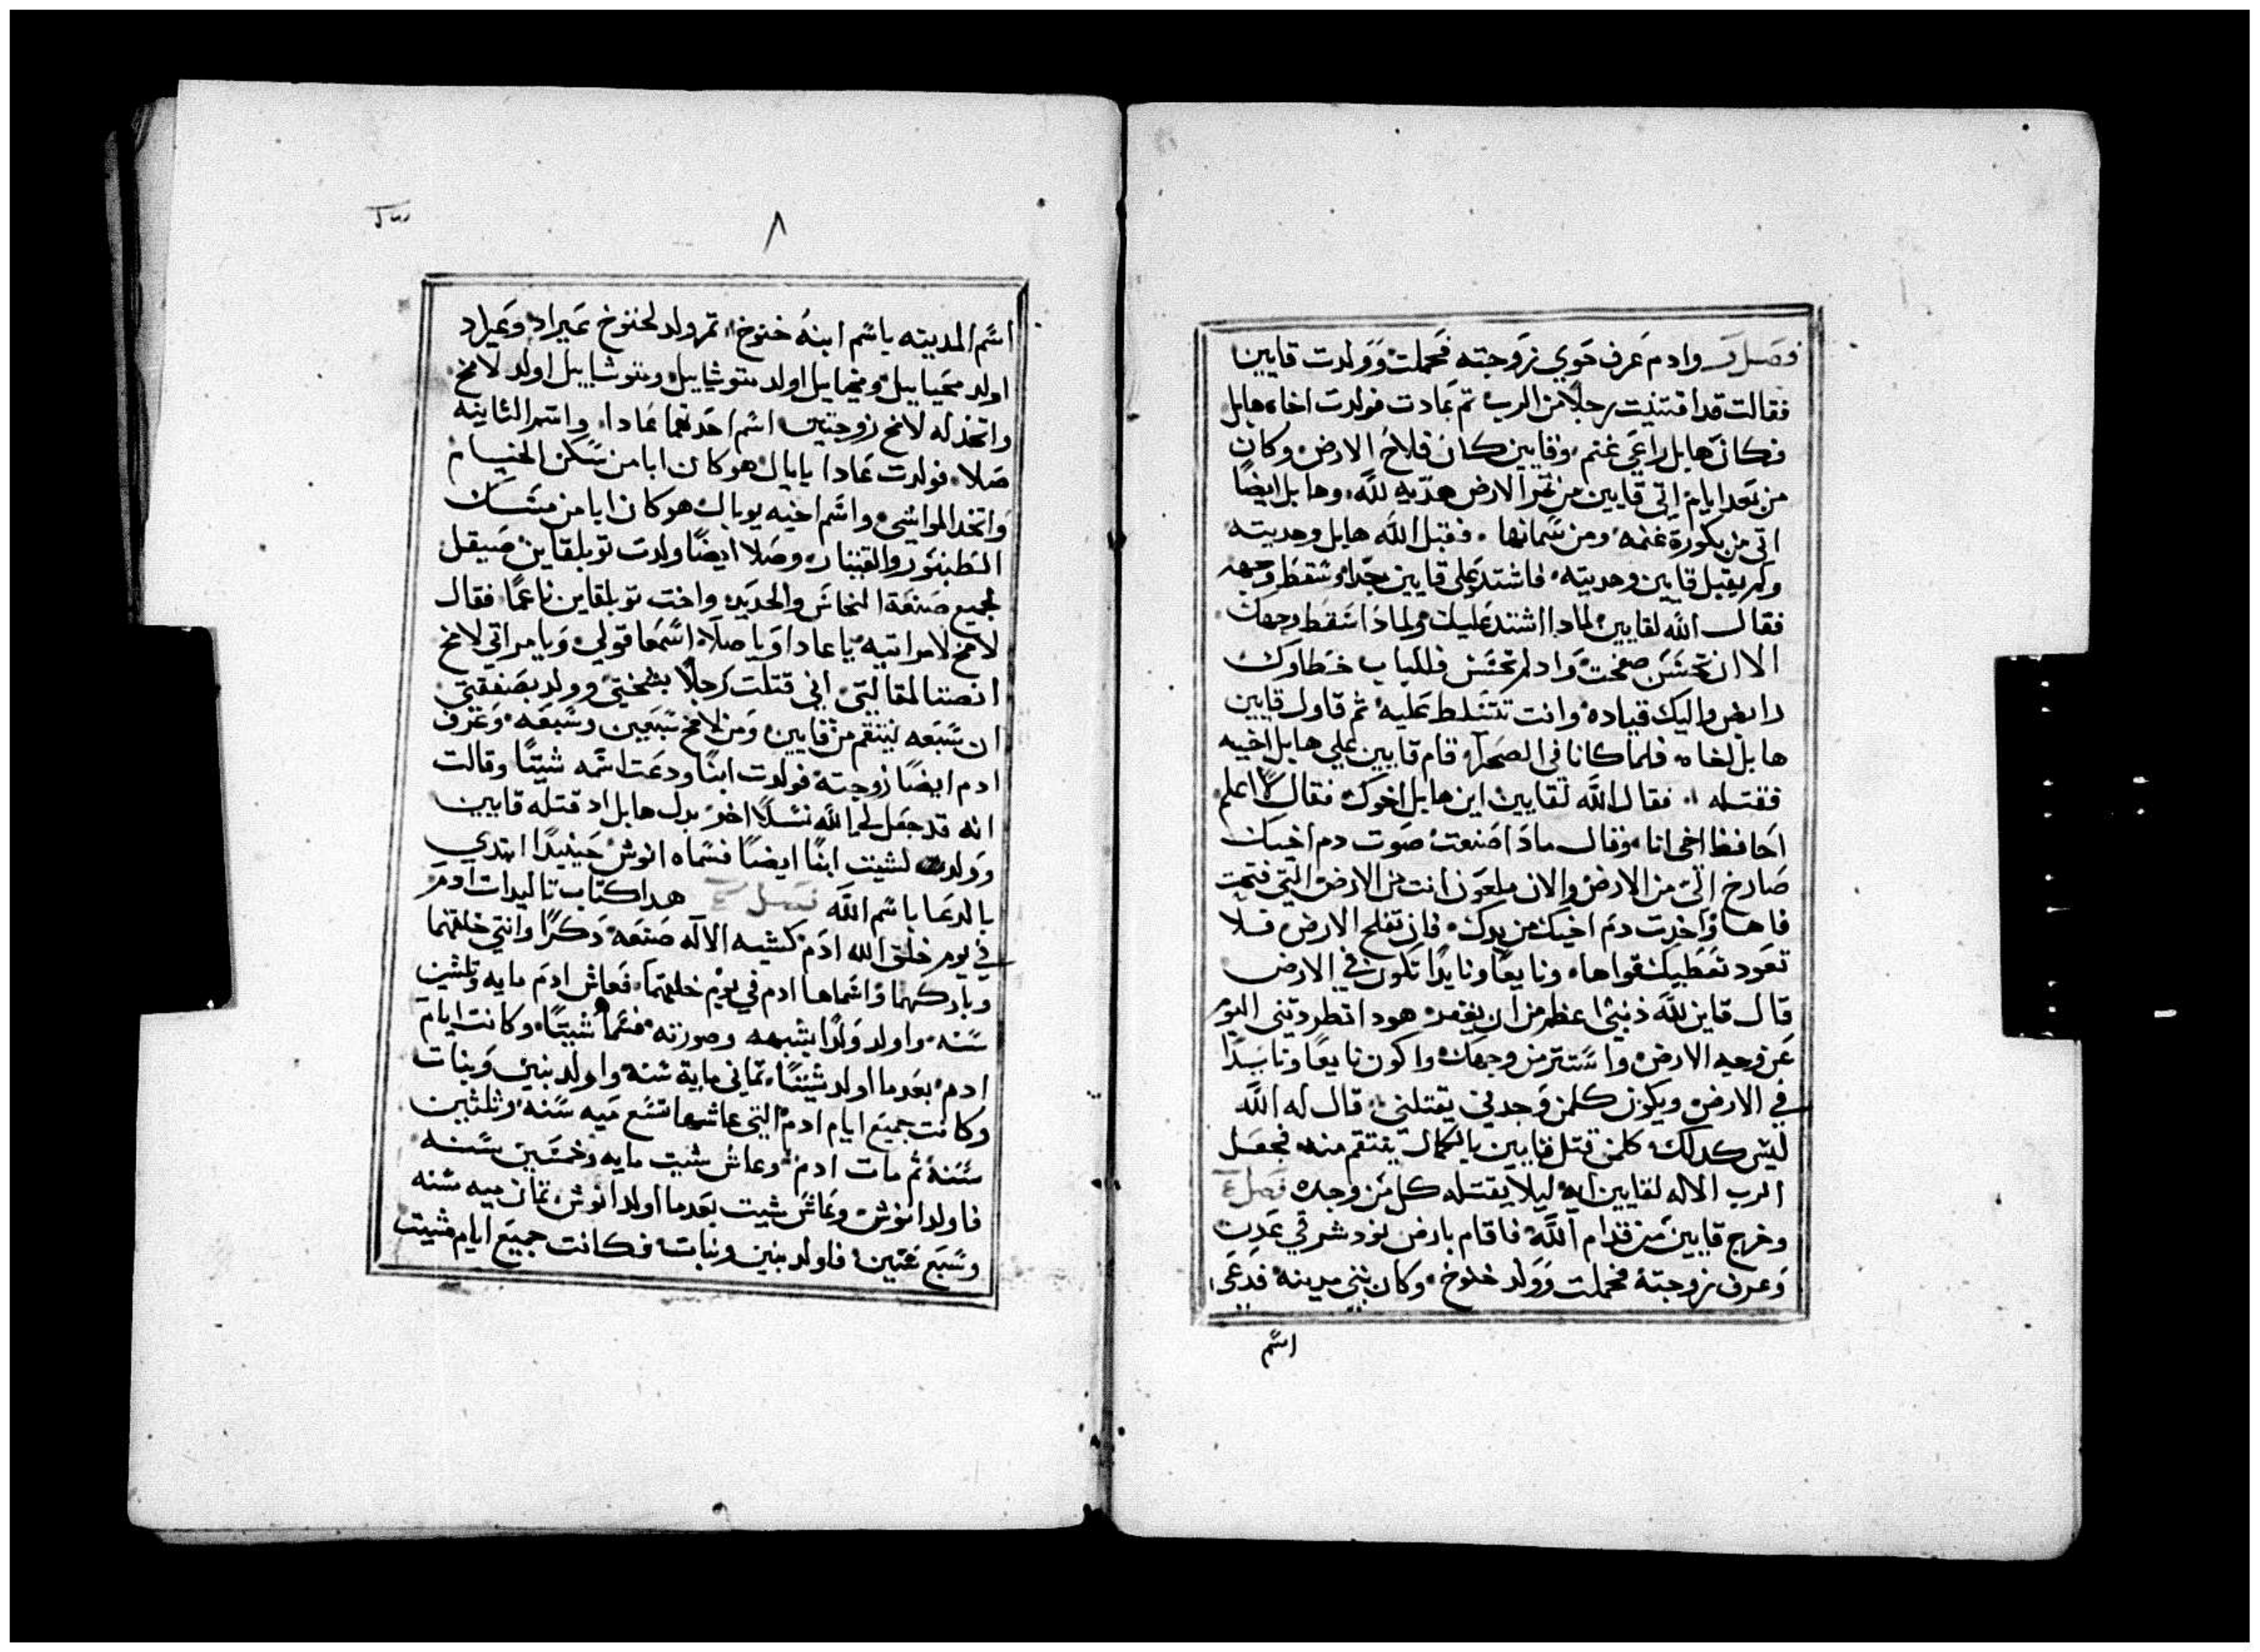 فصل وادم عرف حوي زوجته فحملت وولدت قايين
فقالت قد اقتنيت رجلًا من الرب ثم عادت فولدت اخاه هابل
فكان هابل راعي غنم وقايين كان فلاح الارض وكان
من بعد ايام اتي قايين من ثمر الارض هديه لله وهابل ايضًا
اتي من بكورة غنمه ومن سمانها فقبل الله هابل وهديته
ولم يقبل قايين وهديته فاشتد علي قايين جدا وسقط وجهه
فقال الله لقايين لمادا اشتد عليك ولمادا سقط وجهك
الا ان تحسن صفحت واد لم تحسن فللباب خطاوك
رابض واليك قياده وانت تتسلط عليه ثم قاول قايين
هابل اخاه فلما كانا في الصحرا قام قايين علي هابل اخيه
فقتله فقال الله لقايين اين هابل اخوك فقال لا اعلم
احافظ اخي انا وقال مادا صنعت صوت دم اخيك
صارخ الي من الارض والان ملعون انت من الارض التي فتحت
فاها واخدت دم اخيك من يدك فان تفلح الارض فلا
تعود تعطيك قواها ونايعًا ونايدًا تكون في الارض
قال قاين لله ذنبي اعظم من ان يغفر هودا تطردني اليوم
عن وجه الارض واستتر من وجهك واكون نايعًا ونايدًا
في الارض ويكون كلمن وجدني يقتلني قال له الله
ليس كدلك كلمن قتل قايين بالكمال ينتقم منه فجعل
الرب الاله لقايين ايه ليلا يقتله كل من وجده فصل
وخرج قايين من قدام الله فاقام بارض نود شرقي عدن
وعرف زوجته فحملت وولد خنوخ وكان بني مدينه فدعي
اسم
٨
اسم المدينه باسم ابنه خنوخ ثم ولد لخنوخ عيراد وعيراد
اولد محياييل ومحياييل اولد متوشاييل ومتوشاييل اولد لامخ
واتخذ له لامخ زوجتين اسم احدتهما عادا واسم الثانيه
صلا فولدت عادا يابال هو كان ابا من سكن الخيام
واتخد المواشي واسم اخيه يوبال هو كان ابا من مسك
الطنبور والقيتار وصلا ايضًا ولدت توبلقاين صيقل
لجميع صنعة النحاس والحديد واخت توبلقاين ناعما فقال
لامخ لامراتيه يا عادا ويا صلا اسمعا قولي ويا مراتي لامخ
انصتنا لمقالتي اني قتلت رجلًا بشجتي وولد بصفقتي
ان سبعه ينتقم من قايين ومن لامخ سبعين وسبعه وعرف
ادم ايضًا زوجته فولدت ابنًا ودعت اسمه شيتًا وقالت
انه قد جعل لي الله نسلًا اخر بدل هابل اد قتله قايين
وولد لشيت ابنًا ايضًا فسماه انوش حينيدا ابتدي
بالدعا باسم الله فصل هدا كتاب تاليدات ادم
في يوم خلق الله ادم كشبه الاله صنعه دكرًا وانتي خلقهما
وباركهما واسماهما ادم في يوم خلقهما فعاش ادم مايه وثلثين
سنه واولد ولدًا بشبهه وصورته فسماه شيتًا وكانت ايام
ادم بعد ما اولد شيتًا ثماني ماية سنه واولد بنين وبنات
وكانت جميع ايام ادم التي عاشها تسع ميه سنه وثلثين
سنه ثم مات ادم وعاش شيت مايه وخمسين سنه
فاولد انوش وعاش شيت بعد ما اولد انوش ثمان ميه سنه
وسبع سنين فاولد بنين وبنات فكانت جميع ايام شيت